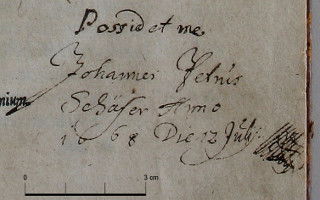 Possidet me
Johannes Petrus
nium
Schäfer Anno
1668 Die 12 Julij
0 3 cm